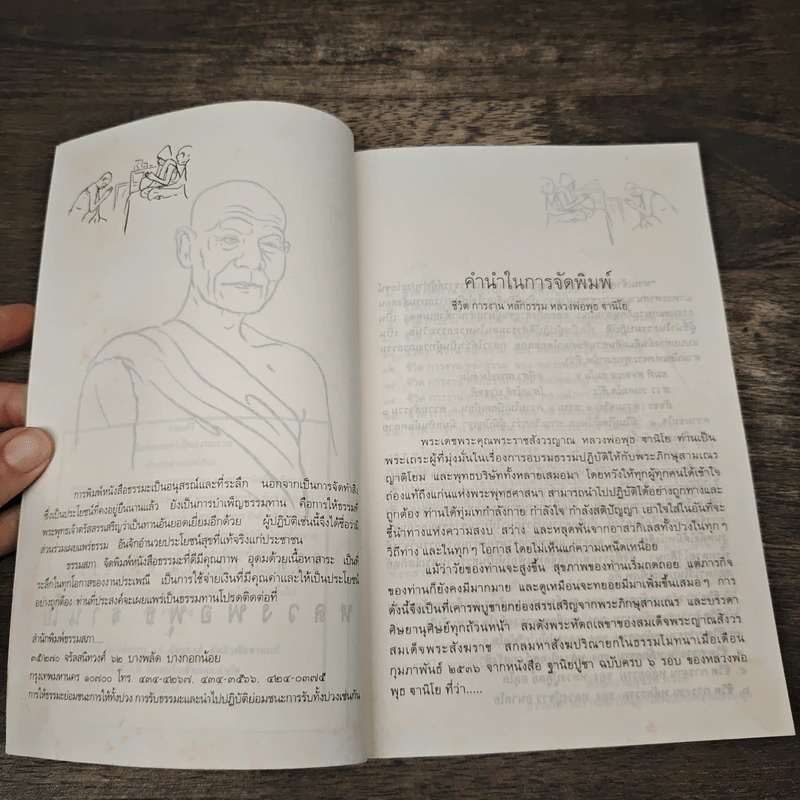 การพิมพ์หนังสือธรรมะเป็นอนุสรณ์และที่ระลึก นอกจากเป็นการจัดทำสิ่ง
ซึ่งเป็นประโยชน์ที่คงอยู่ยืนนานแล้ว ยังเป็นการบำเพ็ญธรรมทาน คือการให้ธรรมที่
พระพุทธเจ้าตรัสสรรเสริญว่าเป็นทานอันยอดเยี่ยมอีกด้วย ผู้ปฏิบัติเช่นนี้จึงได้ชื่อว่ามี
ส่วนร่วมเผยแพร่ธรรม อันจักอำนวยประโยชน์สุขที่แท้จริงแก่ประชาชน
ธรรมสภา จัดพิมพ์หนังสือธรรมะที่ดีมีคุณภาพ อุดมด้วยเนื้อหาสาระ เป็นที่
ระลึกในทุกโอกาสของงานประเพณี เป็นการใช้จ่ายเงินที่มีคุณค่าและให้เป็นประโยชน์
อย่างถูกต้อง ท่านที่ประสงค์จะเผยแพร่เป็นธรรมทานโปรดติดต่อที่
สำนักพิมพ์ธรรมสภา....
๓๕/๒๗๐ จรัลสนิทวงศ์ ๖๒ บางพลัด บางกอกน้อย
กรุงเทพมหานคร ๑๐๗๐๐ โทร. ๔๓๔-๔๒๖๗, ๔๓๔-๓๕๖๖, ๔๒๔-๐๓๗๕
การให้ธรรมะย่อมชนะการให้ทั้งปวง การรับธรรมะและนำไปปฏิบัติย่อมชนะการรับทั้งปวงเช่นกัน
คำนำในการจัดพิมพ์
ชีวิต การงาน หลักธรรม หลวงพ่อพุธ ฐานิโย
พระเดชพระคุณพระราชสังวรญาณ หลวงพ่อพุธ ฐานิโย ท่านเป็น
พระเถระผู้ที่มุ่งมั่นในเรื่องการอบรมธรรมปฏิบัติให้กับพระภิกษุสามเณร
ญาติโยม และพุทธบริษัททั้งหลายเสมอมา โดยหวังให้ทุกผู้ทุกคนได้เข้าใจ
ถ่องแท้ถึงแก่นแท้แห่งพระพุทธศาสนา สามารถนำไปปฏิบัติได้อย่างถูกทางและ
ถูกต้อง ท่านได้ทุ่มเทกำลังกาย กำลังใจ กำลังสติปัญญา เอาใจใส่ในอันที่จะ
ชี้นำทางแห่งความสงบ สว่าง และหลุดพ้นจากอาสวกิเลสทั้งปวงในทุกๆ
วิถีทาง และในทุกๆ โอกาส โดยไม่เห็นแก่ความเหน็ดเหนื่อย
แม้ว่าวัยของท่านจะสูงขึ้น สุขภาพของท่านเริ่มถดถอย แต่ภารกิจ
ของท่านก็ยังคงมีมากมาย และดูเหมือนจะทยอยมีมาเพิ่มขึ้นเสมอๆ การ
ดังนี้จึงเป็นที่เคารพบูชายกย่องสรรเสริญจากพระภิกษุสามเณร และบรรดา
ศิษยานุศิษย์ทุกถ้วนหน้า สมดังพระหัตถเลขาของสมเด็จพระญาณสังวร
สมเด็จพระสังฆราช สกลมหาสังฆปริณายกในธรรมโมทนาเมื่อเดือน
กุมภาพันธ์ ๒๕๓๖ จากหนังสือ ฐานิยปูชา ฉบับครบ ๖ รอบ ของหลวงพ่อ
พุธ ฐานิโย ที่ว่า.....